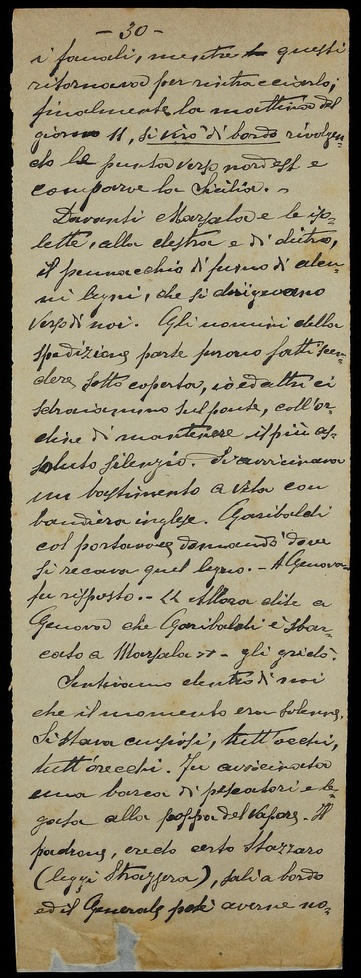 - 30 -
i fanali, mentre questi
ritornava per rintracciarlo;
finalmente la mattina del
giorno 11, si virò di bordo rivolgen-
do la punta verso nord est e
comparve la Sicilia. -
Davanti Marsala e le iso-
lette, alla destra e di dietro,
il pennacchio di fumo di alcu-
ni legni, che si dirigevano
verso di noi. Gli uomini della
spedizione parte furono fatti scen-
dere sotto coperta, io ed altri ci
sdraiammo sul ponte, coll'or-
dine di mantenere il più as-
soluto silenzio. Si avvicinava
un bastimento a vela con
bandiera inglese. Garibaldi
col portavoce domandò dove
si recava quel legno. - A Genova
fu risposto. - " Allora dite a
Genova che Garibaldi è sbar-
cato a Marsala " - gli gridò.
Sentivamo dentro di noi
che il momento era solenne.
Si stava curiosi, tutt'occhi,
tutt'orecchi. Fu avvicinata
una barca di pescatori e le-
gata alla poppa del vapore. Il
padrone, credo certo Stazzaro
(leggi Strazzera), salì a bordo
ed il Generale potè averne no-